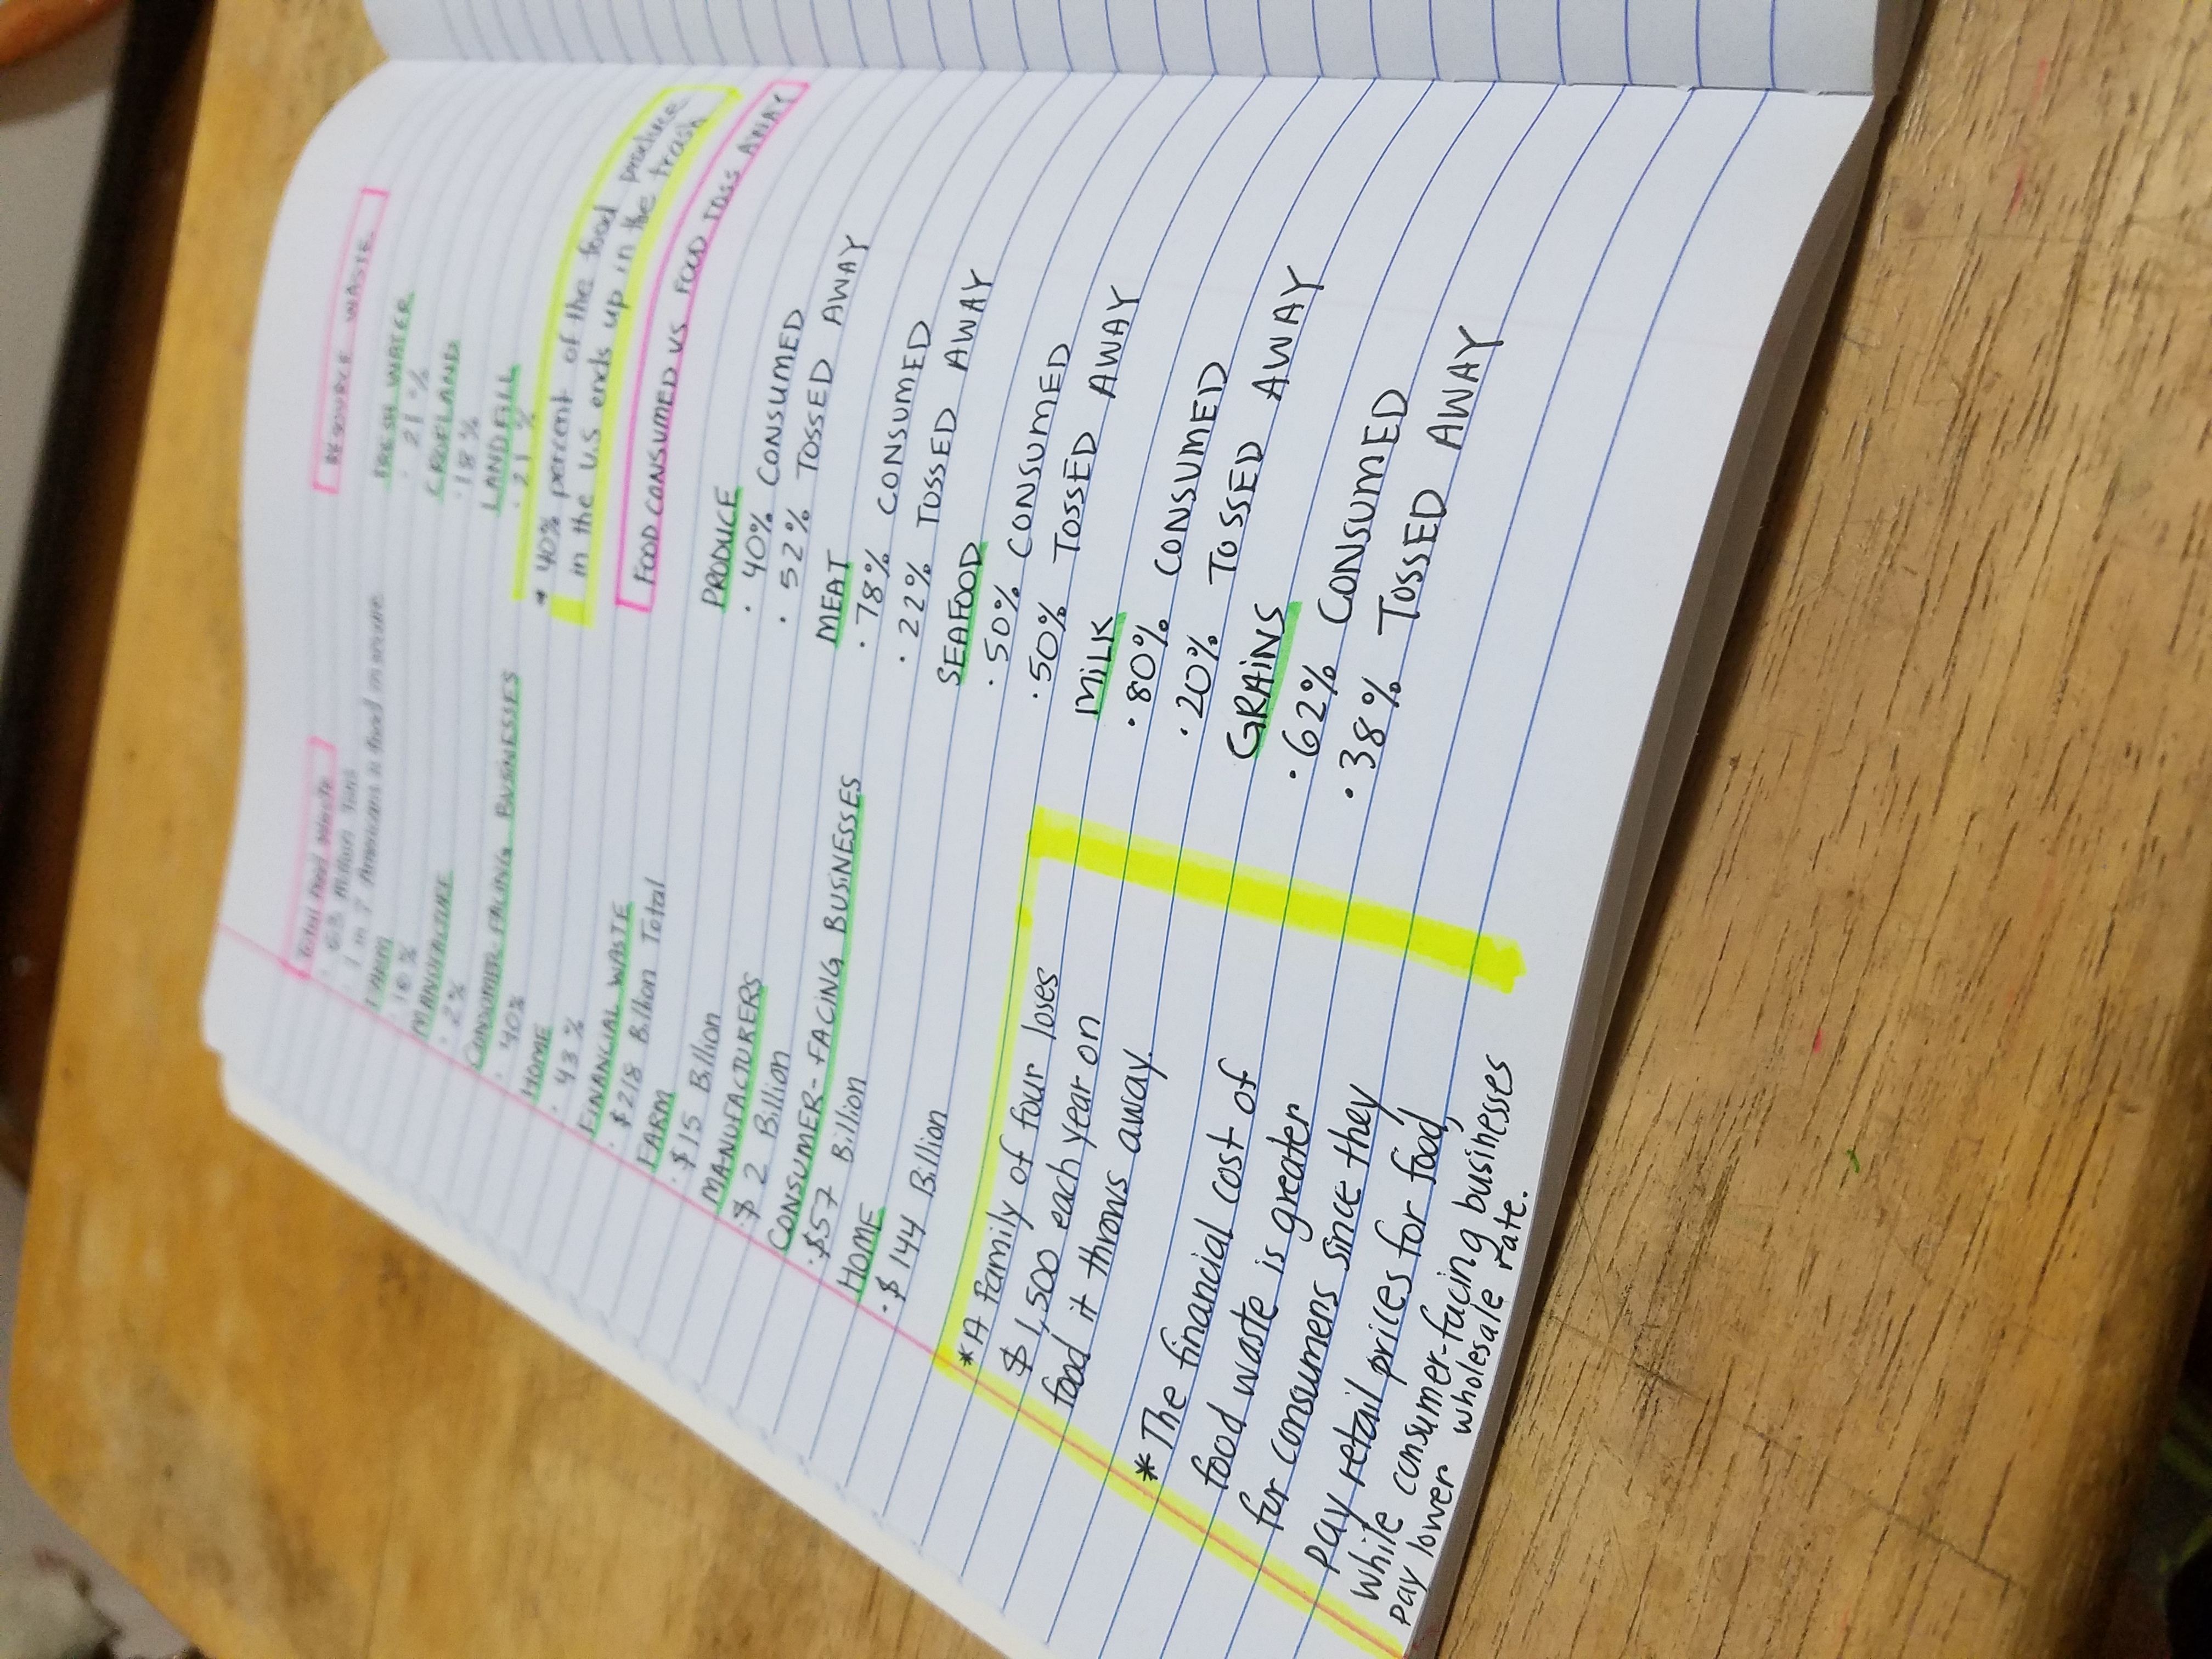 Total Food Waste
· 63 Million Tons
· 1 in 7 Americans is food insecure
FARM
· 16%
MANUFACTURE
· 2%
CONSUMER-FACING BUSINESSES
· 40%
HOME
· 43%
FINANCIAL WASTE
· $218 Billion Total
FARM
· $15 Billion
MANUFACTURERS
· $2 Billion
CONSUMER-FACING BUSINESSES
· $57 Billion
HOME
· $144 Billion
* A family of four loses
$1,500 each year on
food it throws away.
* The financial cost of
food waste is greater
for consumers since they
pay retail prices for food,
while consumer-facing businesses
pay lower wholesale rate.
RESOURCE WASTE
FRESH WATER
· 21%
CROPLAND
· 18%
LANDFILL
· 21%
* 40% percent of the food produce
in the U.S ends up in the trash
FOOD CONSUMED VS FOOD TOSS AWAY
PRODUCE
· 40% CONSUMED
· 52% TOSSED AWAY
MEAT
· 78% CONSUMED
· 22% TOSSED AWAY
SEAFOOD
· 50% CONSUMED
· 50% TOSSED AWAY
MILK
· 80% CONSUMED
· 20% TOSSED AWAY
GRAINS
· 62% CONSUMED
· 38% TOSSED AWAY